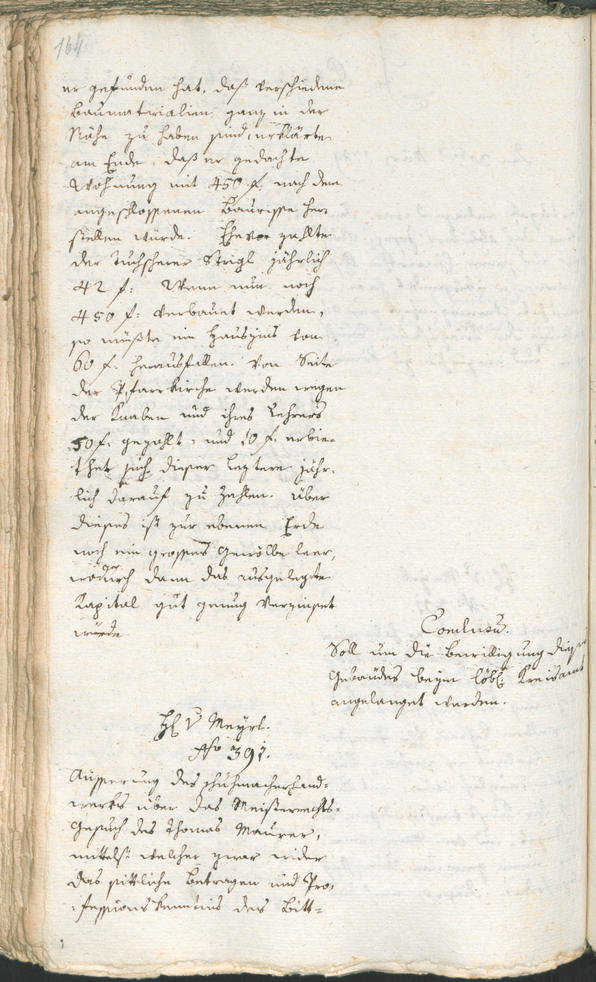 164
er gefunden hat, daß verschiedene
Baumaterialien ganz in der
Nähe zu haben sind, erklärte
am Ende, daß er gedachte
Wohnung mit 450 f. nach dem
angeschlossenen Baurisse her=
stellen würde. Ehevor zallte
der Tuchscherer Strigl jährlich
42 f: Wenn nun noch
450 f: verbauet werden,
so müßte ein Hauszins von
60 f. herausfallen. Von Seite
der Pfarrkirche werden wegen
der Knaben und ihres Lehrers
50 f. gezahlt: und 10 f. erbie=
thet sich dieser leztere jähr=
lich darauf zu zahlen. Über
dieses ist zur ebenen Erde
noch ein grosses Gewölbe leer,
wodurch dann das ausgelegte
Kapital gut genug verzinset
würde.
Conclusum.
Soll um die Bewilligung dieses
Gebäudes beym löbl: Kreisamt
angelanget werden.
H v Meyrl.
Nro 391.
Äusserung des Schuhmacherhand=
werks über das Meisterrechts=
Gesuch des Thomas Maurer,
mittelst welcher zwar wider
das sittliche Betragen und Pro=
fessionskenntnis des Bitt=